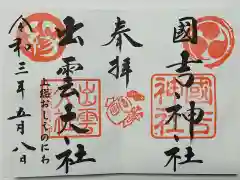 國吉神社
奉拝
出雲大社
上総おしえのにわ
令和三年五月八日
國吉神社